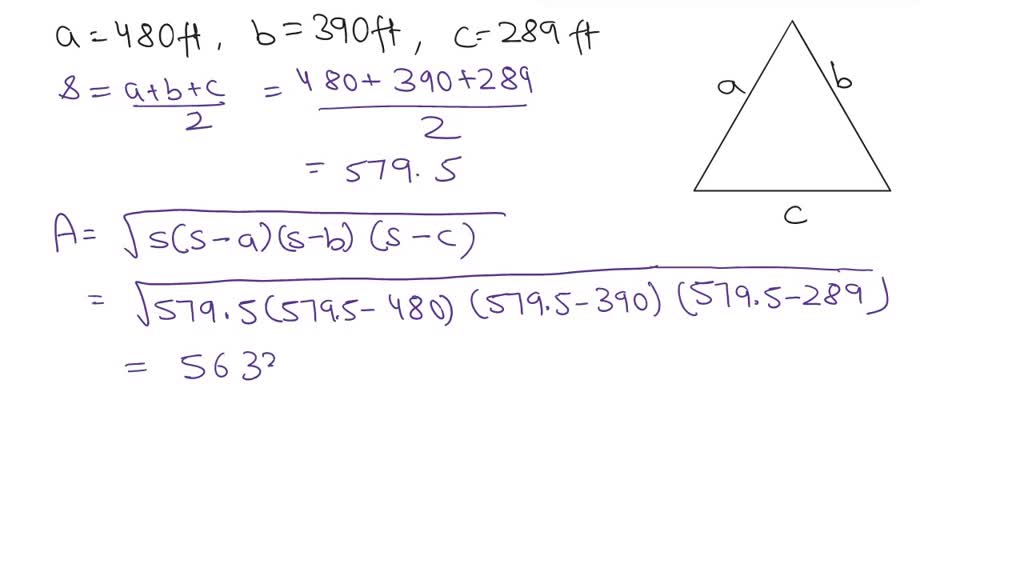 a=480ft, b=390ft, c=289ft
S = a+b+c / 2 = 480+390+289 / 2
= 579.5
A= √s(s-a)(s-b)(s-c)
= √579.5(579.5-480)(579.5-390)(579.5-289)
= 563
a
b
c